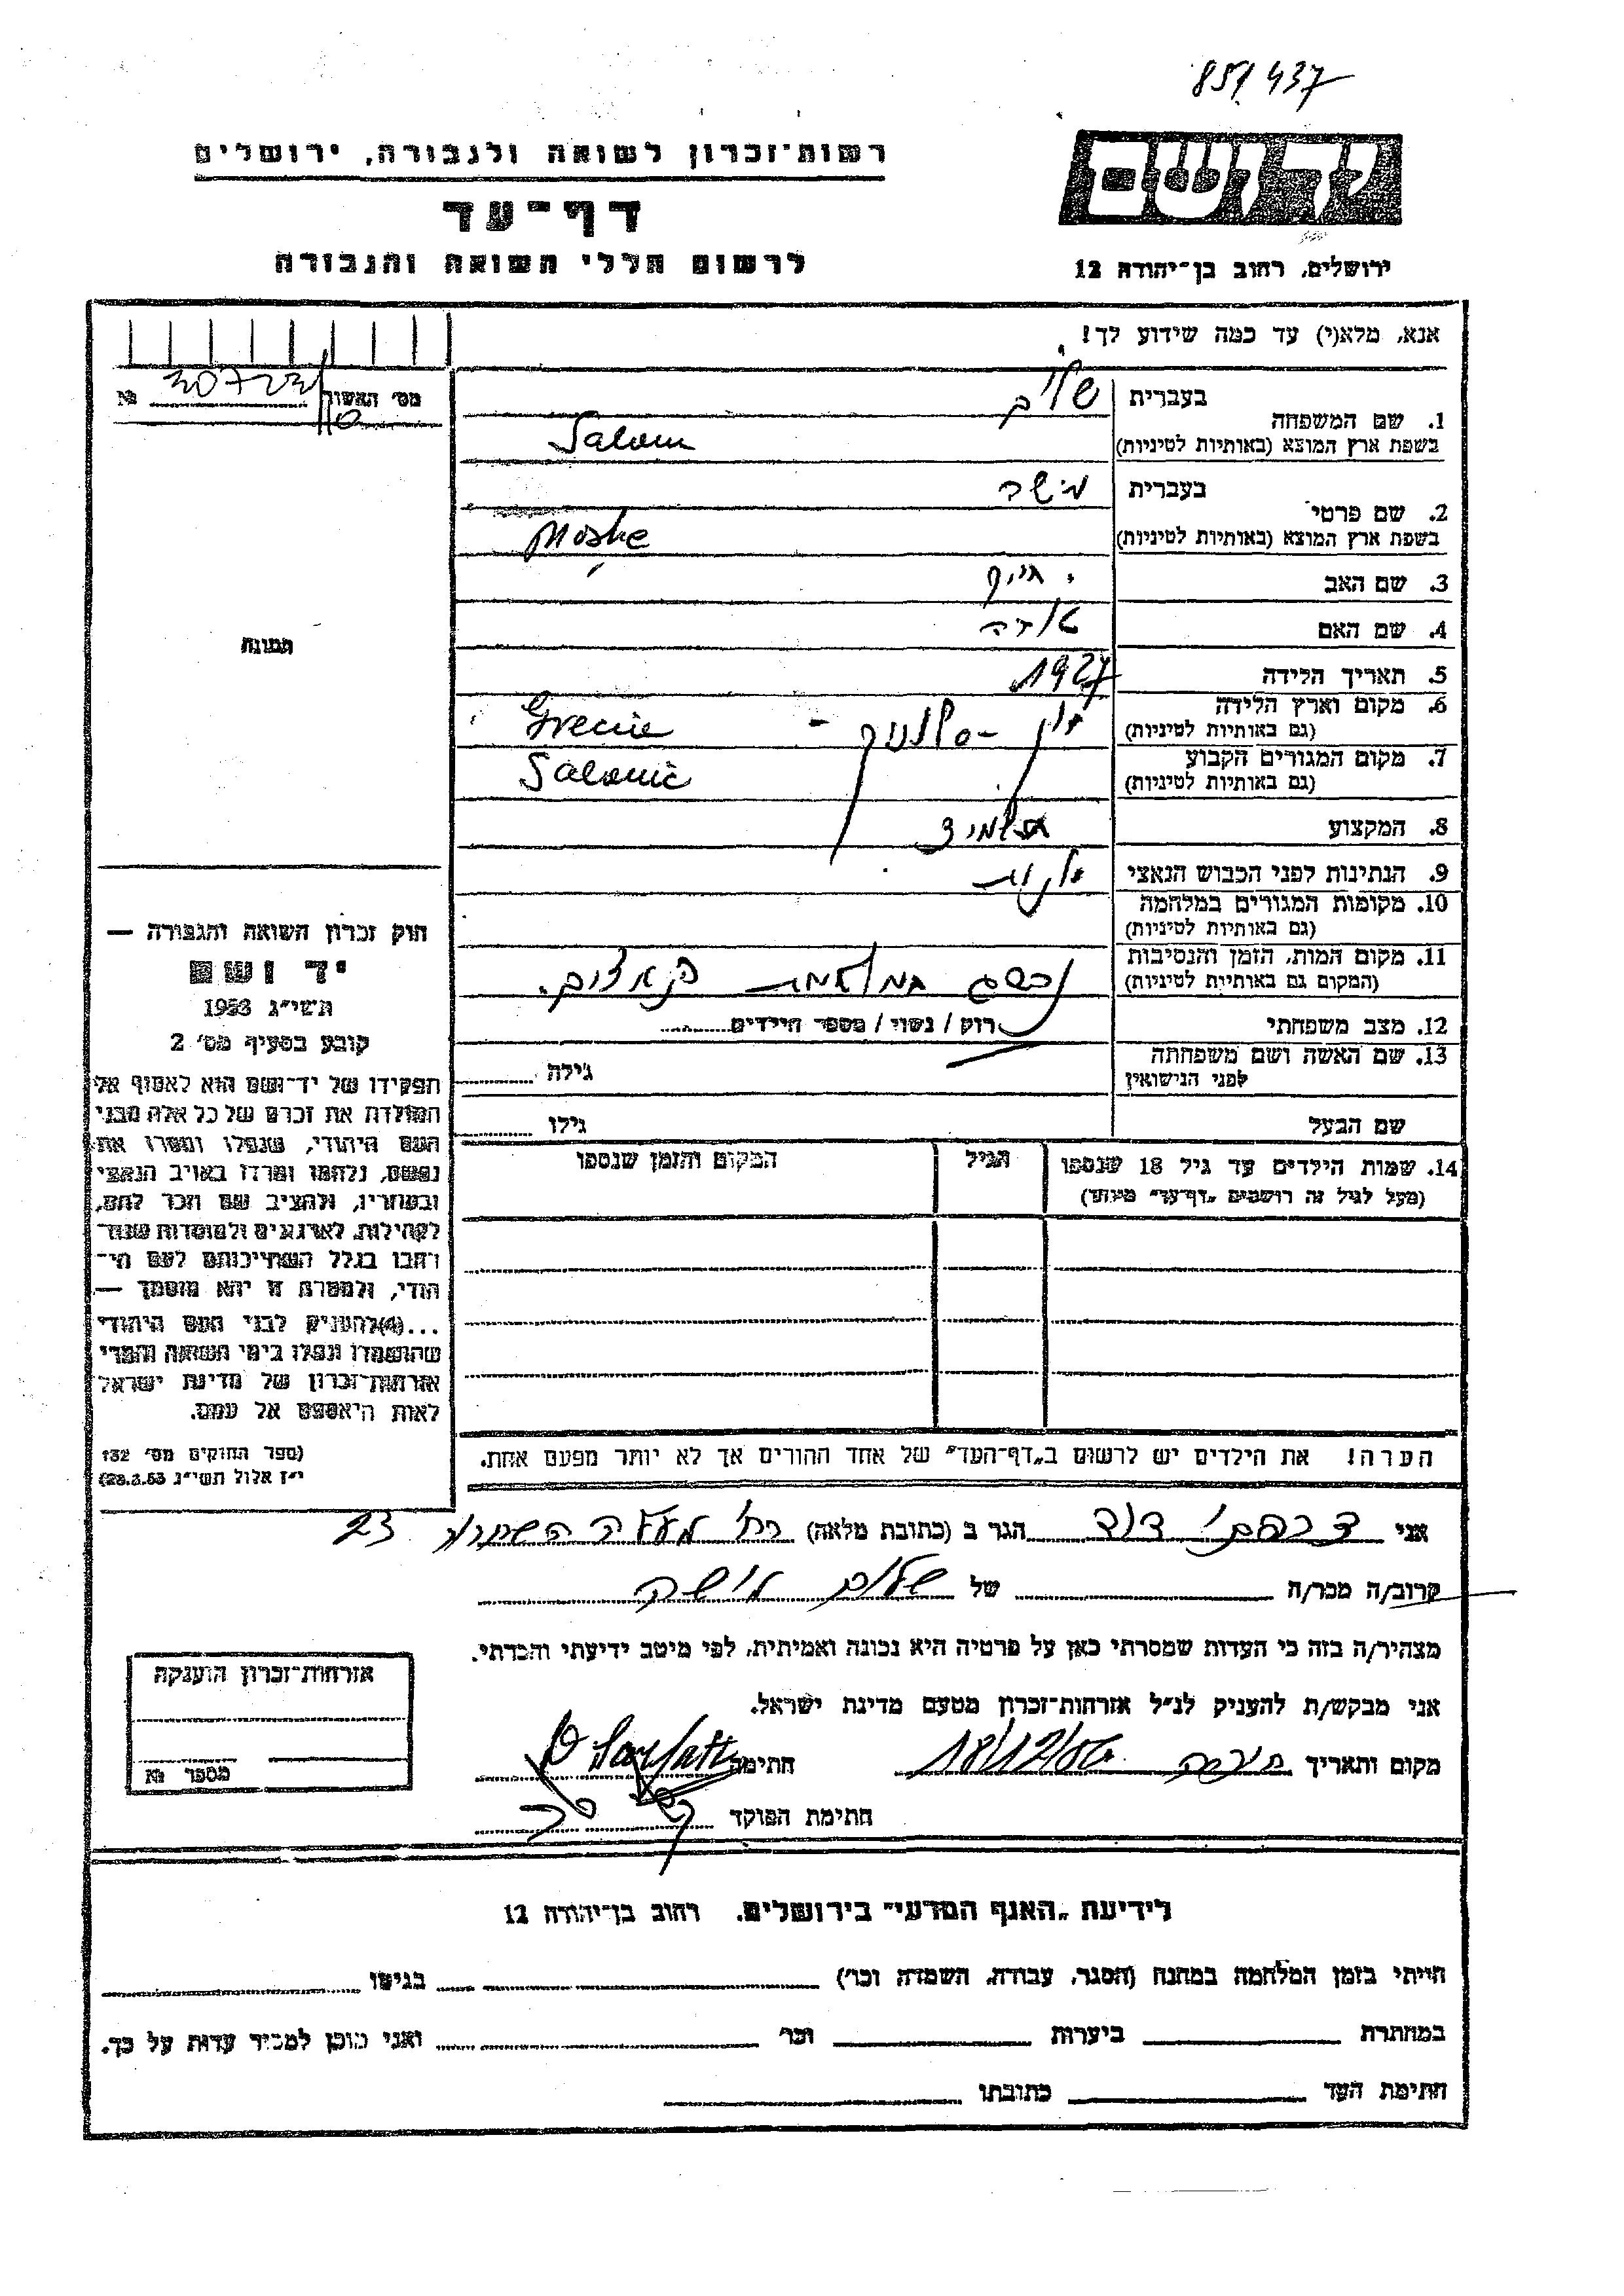 851437
רשות־זכרון לשואה ולגבורה, ירושלים
דף־עד
לרשום חללי השואה והגבורה
יד ושם
ירושלים, רחוב בן־יהודה 12
אנא, מלא(י) עד כמה שידוע לך!
מס׳ האשור № 30722
1. שם המשפחה
בעברית שלום
בשפת ארץ המוצא (באותיות לטיניות) Salom
2. שם פרטי
בעברית מישה
בשפת ארץ המוצא (באותיות לטיניות) Moshe
3. שם האב
4. שם האם
5. תאריך הלידה 1927
6. מקום וארץ הלידה יון - סלוניקי - Grecie
(גם באותיות לטיניות)
7. מקום המגורים הקבוע Salonic
(גם באותיות לטיניות)
8. המקצוע תלמיד
9. הנתינות לפני הכבוש הנאצי
10. מקומות המגורים במלחמה
(גם באותיות לטיניות)
11. מקום המות, הזמן והנסיבות
(המקום גם באותיות לטיניות)
12. מצב משפחתי רווק / נשוי / מספר הילדים
13. שם האשה ושם משפחתה
לפני הנישואין גילה
שם הבעל גילו
14. שמות הילדים עד גיל 18 שנספו הגיל המקום והזמן שנספו
(מעל לגיל זה רושמים „דף־עד״ מיוחד)
הערה! את הילדים יש לרשום ב„דף־העד״ של אחד ההורים אך לא יותר מפעם אחת.
תמונה
חוק זכרון השואה והגבורה —
יד ושם
תשי״ג 1953
קובע בסעיף מס׳ 2
תפקידו של יד־ושם הוא לאסוף אל
המולדת את זכרם של כל אלה מבני
העם היהודי, שנפלו ומסרו את
נפשם, נלחמו ומרדו באויב הנאצי
ובעוזריו, ולהציב שם וזכר להם,
לקהילות, לארגונים ולמוסדות שנח־
רבו בגלל השתייכותם לעם הי־
הודי, ולמטרה זו יהא מוסמך —
...(4)להעניק לבני העם היהודי
שהושמדו ונפלו בימי השואה והמרי
אזרחות־זכרון של מדינת ישראל
לאות היאספם אל עמם.
(ספר החוקים מס׳ 132
י״ז אלול תשי״ג 28.8.53)
אני צרפתי דוד הגר ב (כתובת מלאה) 23
קרוב/ה מכר/ה של שלום מישה
מצהיר/ה בזה כי העדות שמסרתי כאן על פרטיה היא נכונה ואמיתית, לפי מיטב ידיעתי והכרתי.
אני מבקש/ת להעניק לנ״ל אזרחות־זכרון מטעם מדינת ישראל.
מקום ותאריך 18/12/56 חתימה D Sarfatti
חתימת הפוקד
אזרחות־זכרון הוענקה
מספר №
לידיעת „האגף המדעי״ בירושלים. רחוב בן־יהודה 12
הייתי בזמן המלחמה במחנה (הסגר, עבודה, השמדה וכו׳) בגיטו
במחתרת ביערות וכו׳ ואני מוכן למסור עדות על כך.
חתימת העד כתובתו